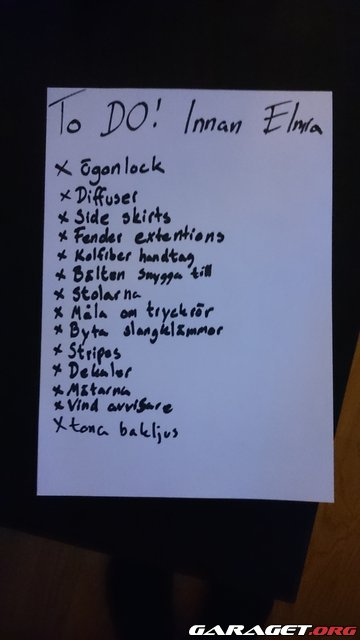 To DO! Innan Elmia
x Ögonlock
x Diffuser
x Side skirts
x Fender extentions
x Kolfiber handtag
x Bälten snygga till
x Stolarna
x Måla om tryckrör
x Byta slangklämmor
x Stripes
x Dekaler
x Mätarna
x Vind avvisare
x tona bakljus
GARAGET.ORG